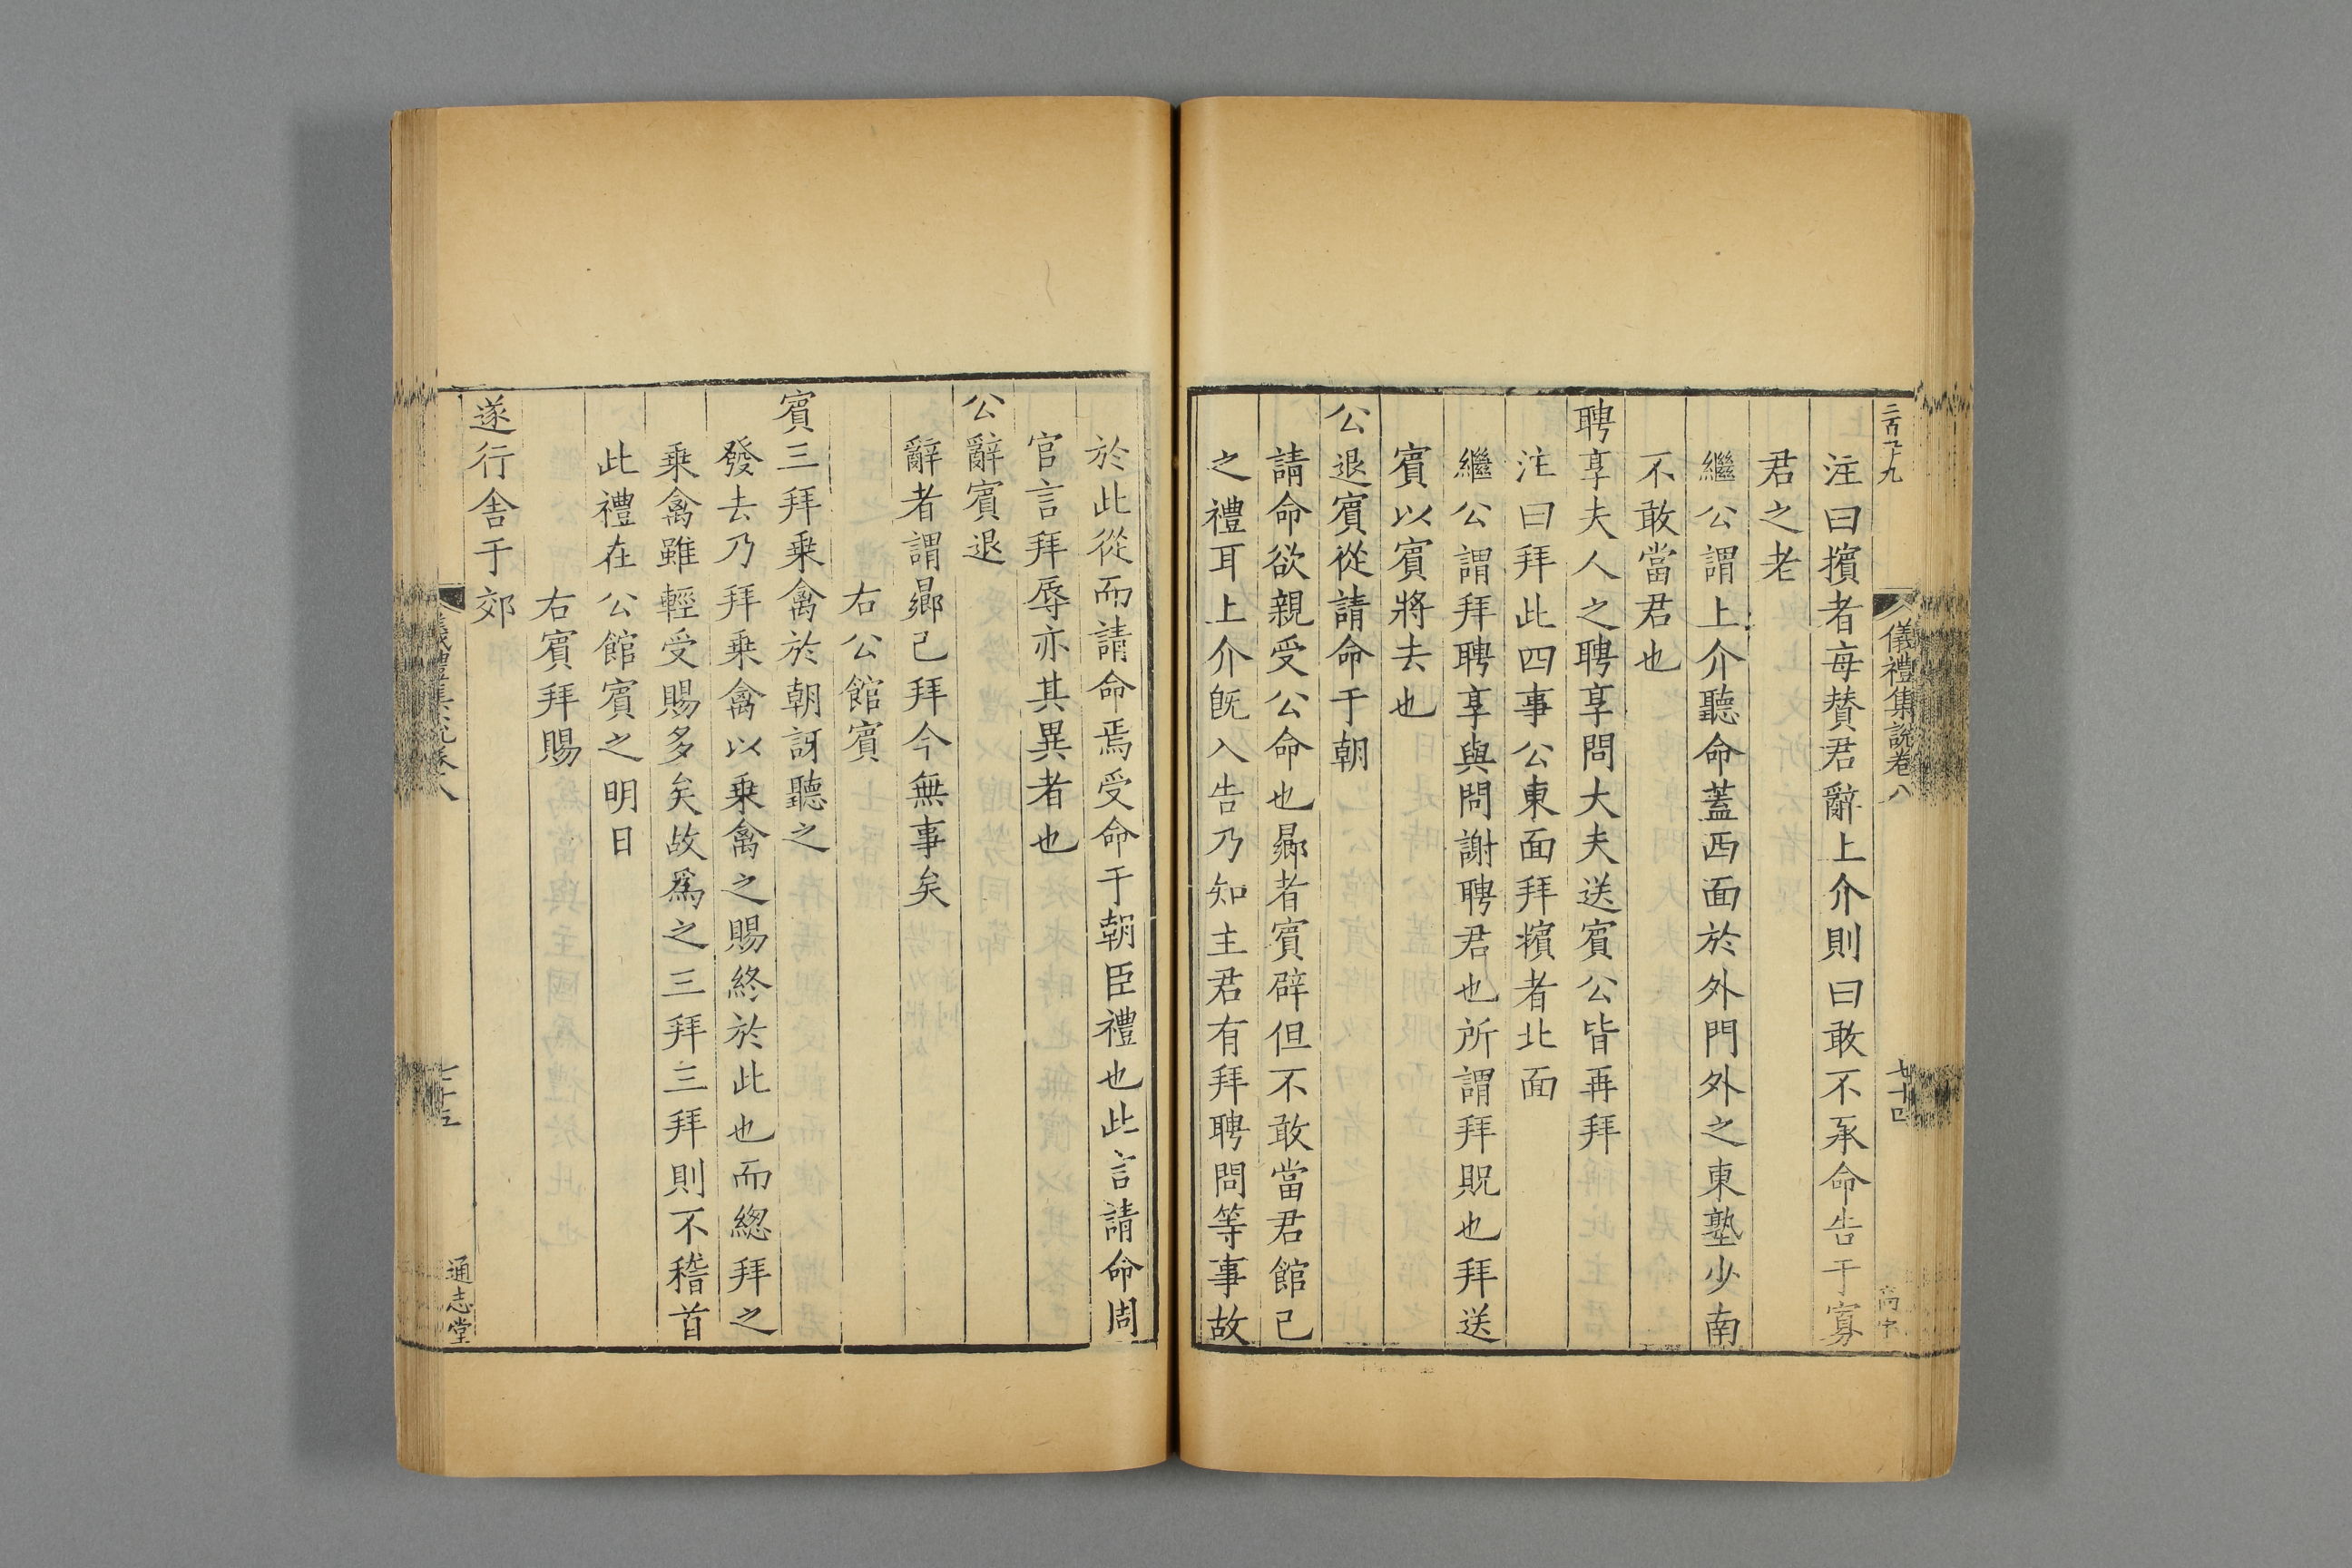 儀禮集說卷八
七十四
注曰擯者每贊君辭上介則曰敢不承命告于寡
君之老
繼公謂上介聽命蓋西面於外門外之東塾少南
不敢當君也
聘享夫人之聘享問大夫送賓公皆再拜
注曰拜此四事公東面拜擯者北面
繼公謂拜聘享與問謝聘君也所謂拜貺也拜送
賓以賓將去也
公退賓從請命于朝
請命欲親受公命也曏者賓辟但不敢當君館己
之禮耳上介旣入告乃知主君有拜聘問等事故
於此從而請命焉受命于朝臣禮也此言請命周
官言拜辱亦其異者也
公辭賓退
辭者謂曏已拜今無事矣
右公館賓
賓三拜乗禽於朝訝聽之
發去乃拜乗禽以乗禽之賜終於此也而緫拜之
乗禽雖輕受賜多矣故爲之三拜三拜則不稽首
此禮在公館賓之明日
右賓拜賜
遂行舍于郊
通志堂